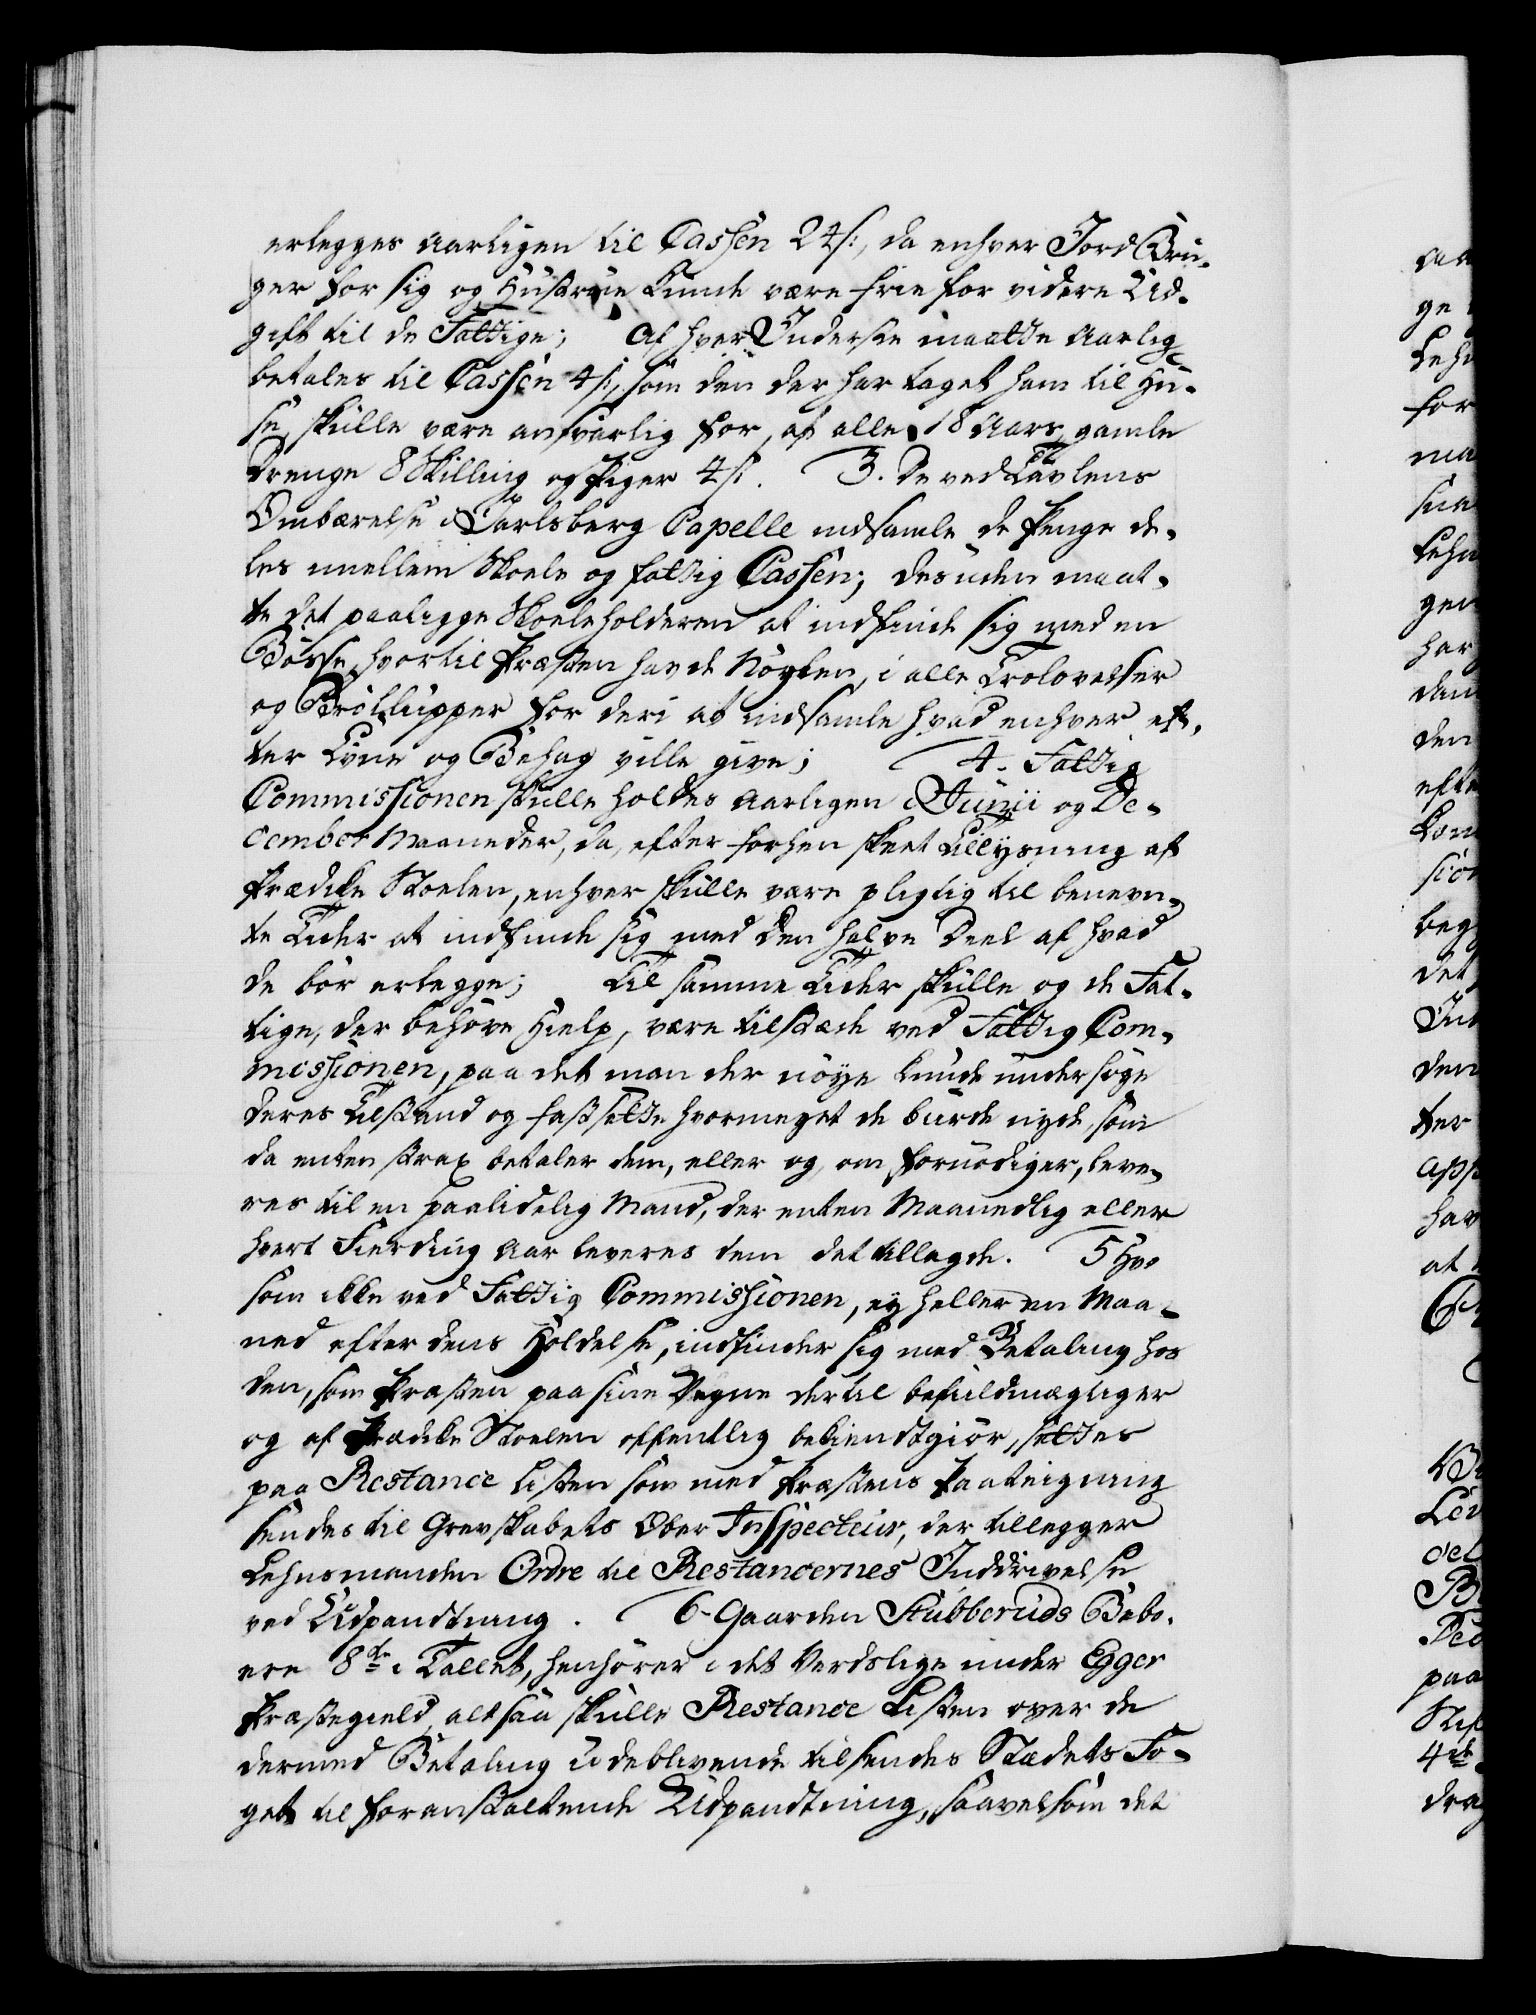 erlegges aarligen til Cassen 24 s:, da enhver Jord Bru-
ger for sig og Hustrue kunde være frie for videre Ud-
gift til de Fattige; Af hver Inderste maatte Aarlig
betales til Cassen 4 s:, som den der har taget ham til Hu-
se, skulle være ansvarlig for, af alle 18 Aars gamle
Drenge 8 Skilling og Piger 4 s:. 3. De ved Tavlens
Ombærelse i Carlsberg Capelle indsamlede Penge de-
les imellem Skole og fattig Cassen; desuden maat-
te det paaligge Skoeleholderen at indfinde sig med en
Bösse, hvortil Præsten havde Nöglen, i alle Trolovelser
og Bröllupper for deri at indsamle hvad enhver ef-
ter Evne og Behag ville give; 4. Fattig
Commissionen skulle holdes aarligen i Junii og De-
cember Maaneder, da, efter forhen skeet Tillysning af
Prædike Stoelen, enhver skulle være pligtig til benevn-
te Tider at indfinde sig med den halve Deel af hvad
de bör erlegge; Til samme Tider skulle og de Fat-
tige, der behöve Hielp, være tilstæde ved Fattig Com-
missionen, paa det man der nöye kunde undersöge
deres Tilstand og fastsette hvormeget de burde nyde, som
da enten strax betales dem, eller og, om fornödiges, leve-
res til en paalidelig Mand, der enten Maanedlig eller
hvert Fierding Aar leveres dem det tillagde. 5 Hvo
som ikke ved Fattig Commissionen, ey heller en Maa-
ned efter dens Holdelse, indfinder sig med Betaling hos
den, som Præsten paa sine Vegne dertil befuldmægtiger
og af Prædike Stoelen offentlig bekiendtgiör, settes
paa Restance Listen som med Præstens Paateigning
sendes til Grevskabets Ober Inspecteur, der tillegger
Lehnsmanden Ordre til Restancernes Inddrivelse
ved Udpandtning. 6. Gaarden Stubberuds Bebo-
ere 8te i Tallet, henhörer i det Verdslige under Egger
Præstegield, altsaa skulle Restance Listen over de
dermed Betaling udeblivende tilsendes Stædets Fo-
get til foranstaltende Udpandtning, saavelsom det